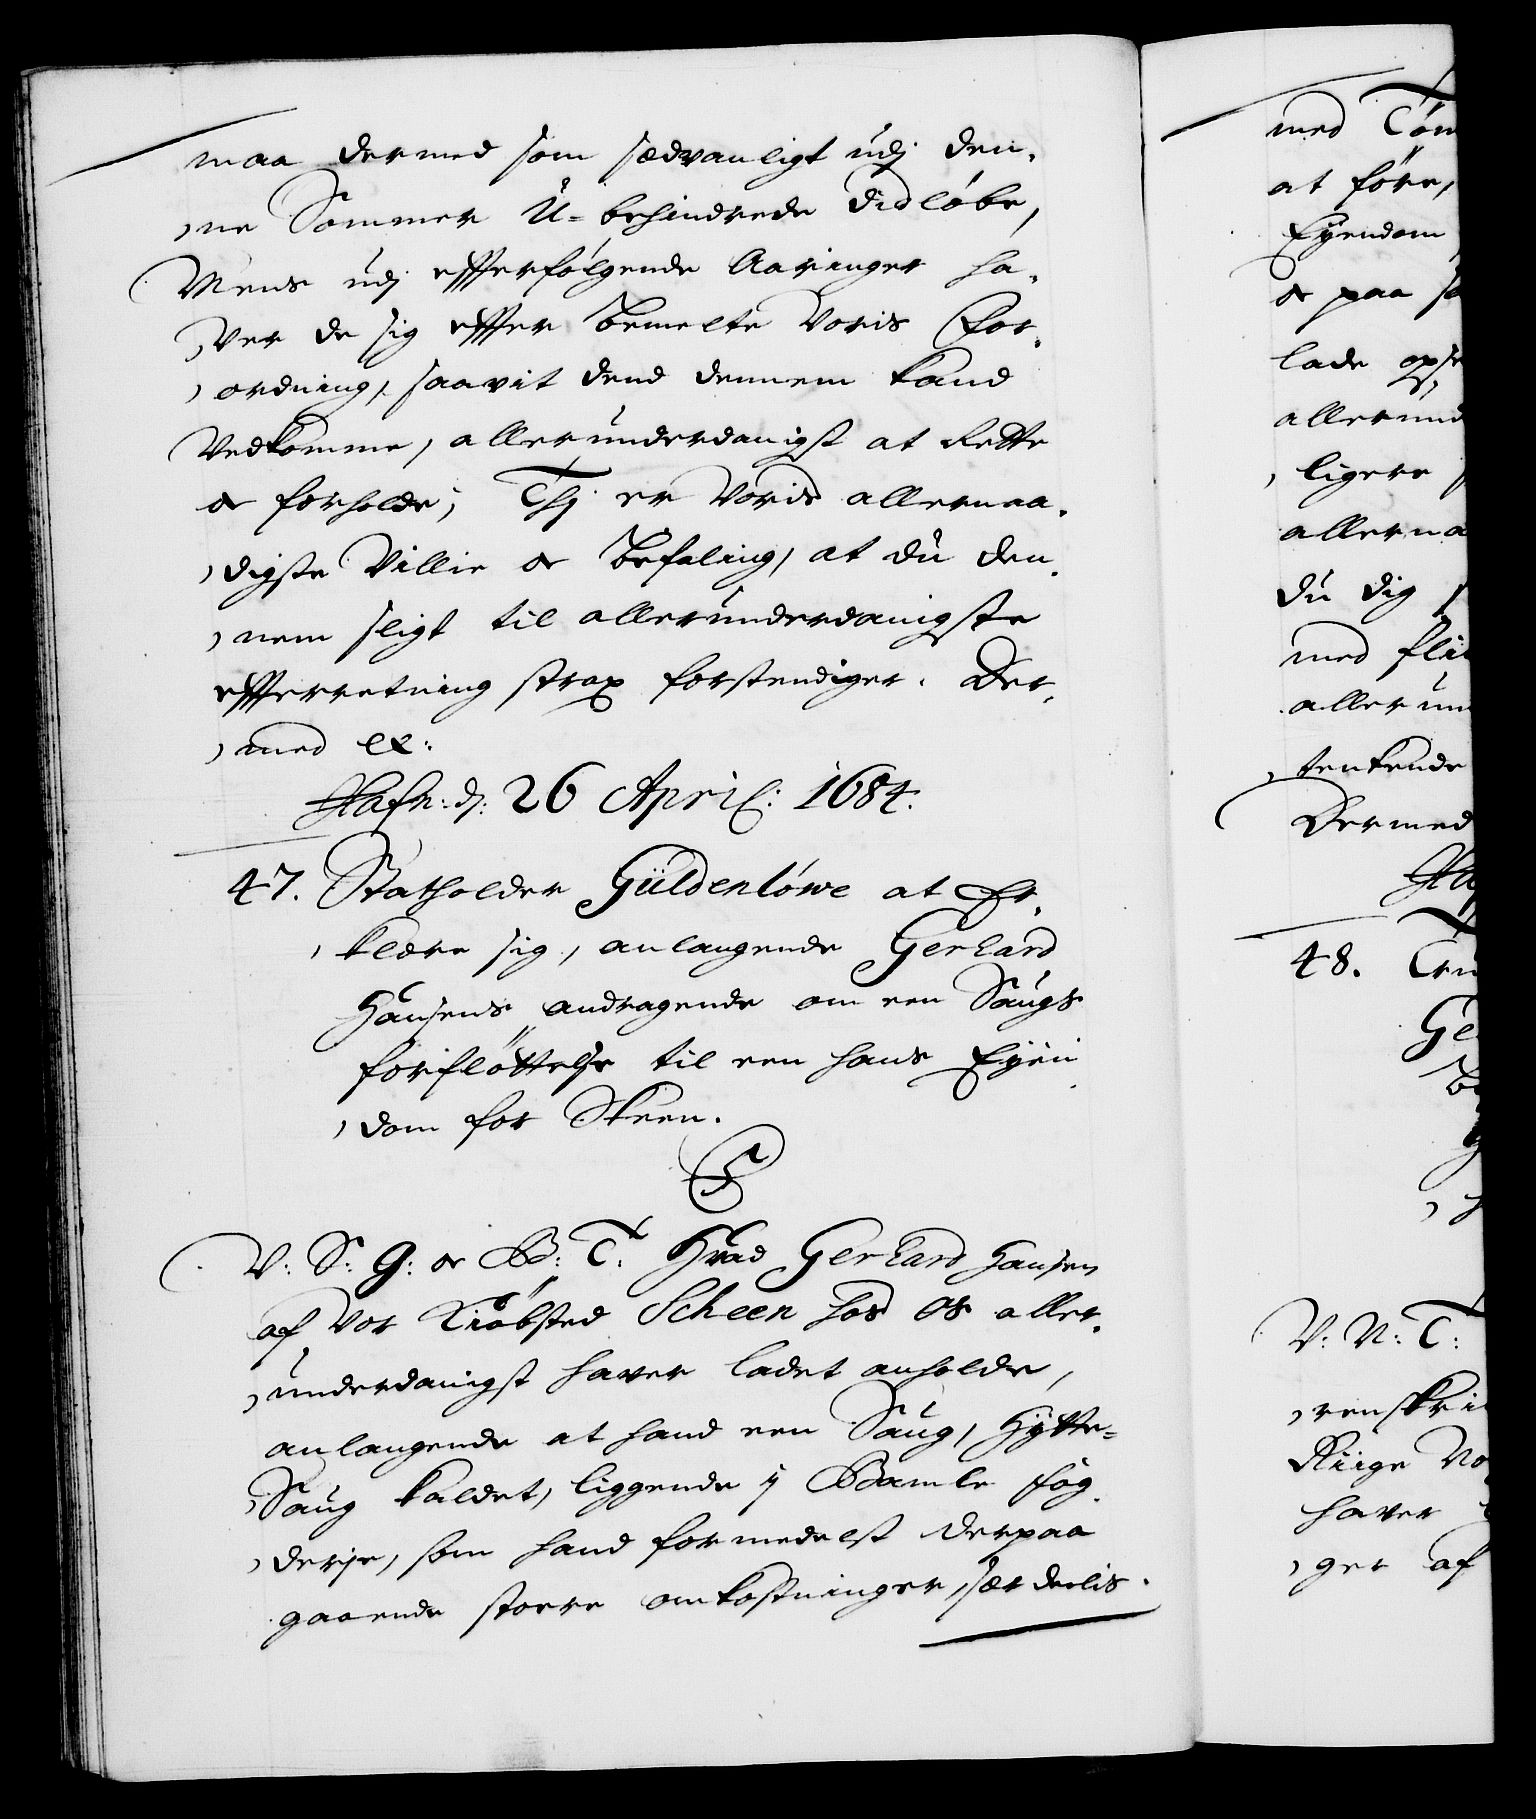 maa dermed som sædvanligt udj den,
,ne Sommer U-behindrede didløbe,
Mens udj effterfølgende Aaringer ha,
,ver de sig effter bemelte Voris For,
,ordning, saavit dend dennem kand
Vedkomme, allerunderdanigst at Rette
oc forholde; Thj er Voris allernaa,
,digste Villie oc Befaling, at du den,
,nem sligt til allerunderdanigste
effterretning strax forstendiger. Der,
,med etc:
Hafn: d: 26 April: 1684.
47. Statholder Güldenlöwe at Er,
,klære sig, anlangende Gerhard
Hansens andragende om een Saugs
forfløttelse til een hans Eyen
,dom for Skeen.
V: S: G: oc B: T. Hvad Gerhard Hansen
af Vor Kiøbsted Scheen hos Os aller,
,underdanigst haver ladet anholde,
anlangende at hand een Saug, Hytte=
Saug kaldet, liggende j Bamle fog,
,derje, som hand formedelst derpaa
gaaende stoere omkostninger, særdeelis.
med Töm
at føre,
Eyendom
oc paa sa
lade opse
allerund
,ligere
allerna
du dig
med flii
allerun
,tenkende
Dermed
Ha
48.
Ge
V: N: T:
,renskri
Riige No
haver
,ger af